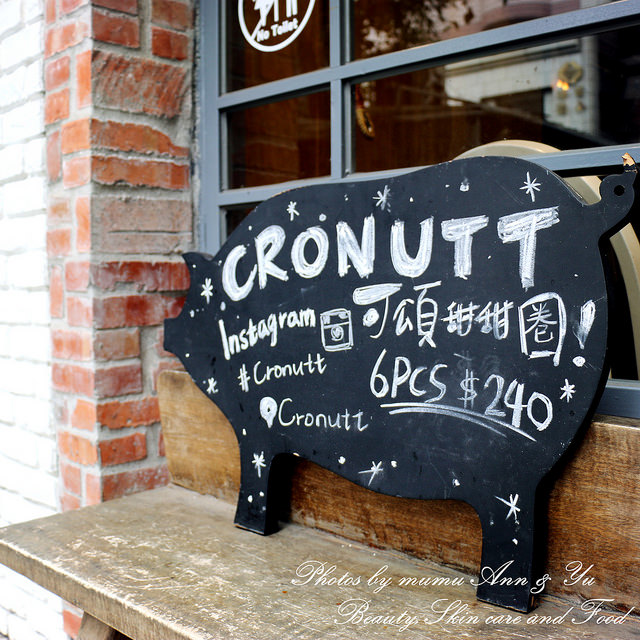 No Toilet
CRONUTT
Instagram 可頌甜甜圈!
#Cronutt
6PCS $240
Cronutt
Photos by mumu Ann & Yu
Beauty, Skin care and Food